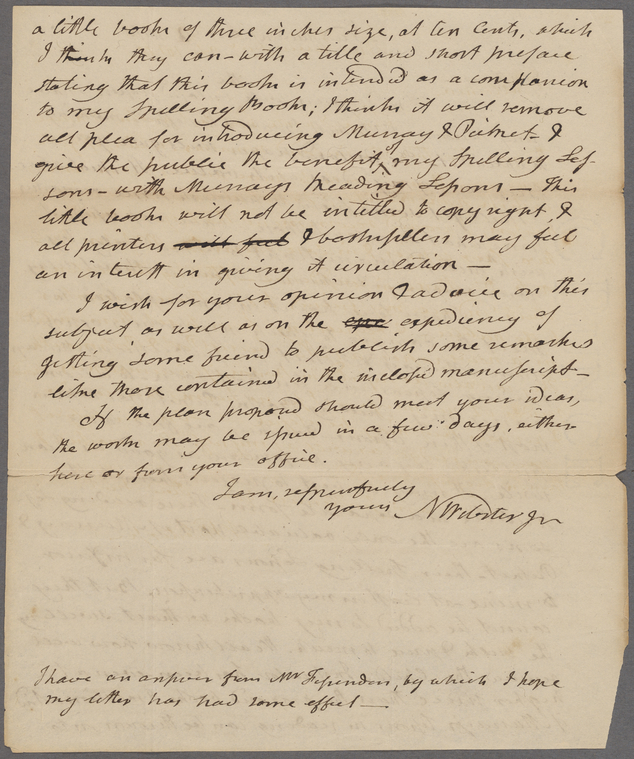 a little book of three inches size, at ten cents, which
I think they can - with a title and short preface
stating that this book is intended as a companion
to my Spelling Book; I think it will remove
all plea for introducing Murray & Pickets &
give the public the benefit of my Spelling Les-
sons - with Murrays Reading Lessons - This
little book will not be intitled to copy right, &
all printers will feel & booksellers may feel
an interest in giving it circulation -
I wish for your opinion & advice on this
subject, as well as on the expediency of
getting some friend to publish some remarks
like those contained in the inclosed manuscript -
If the plan proposed should meet your ideas,
the work may be issued in a few days, either
here or from your office.
I am, respectfully
yours N Webster Jr
I have an answer from Mr Fessenden, by which I hope
my letter has had some effect -